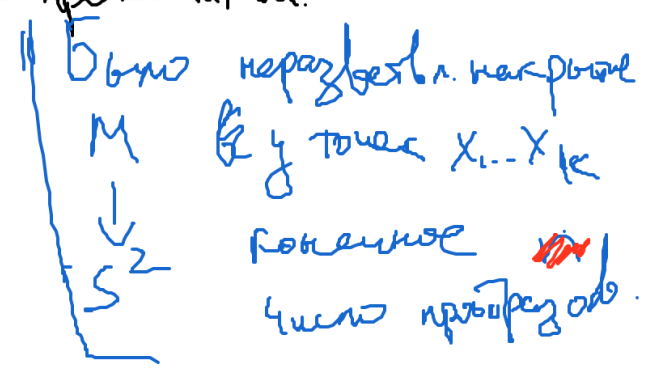 Было неразветвл. накрытие
M у точек x₁...xₖ
↓
S² конечное
число прообразов.